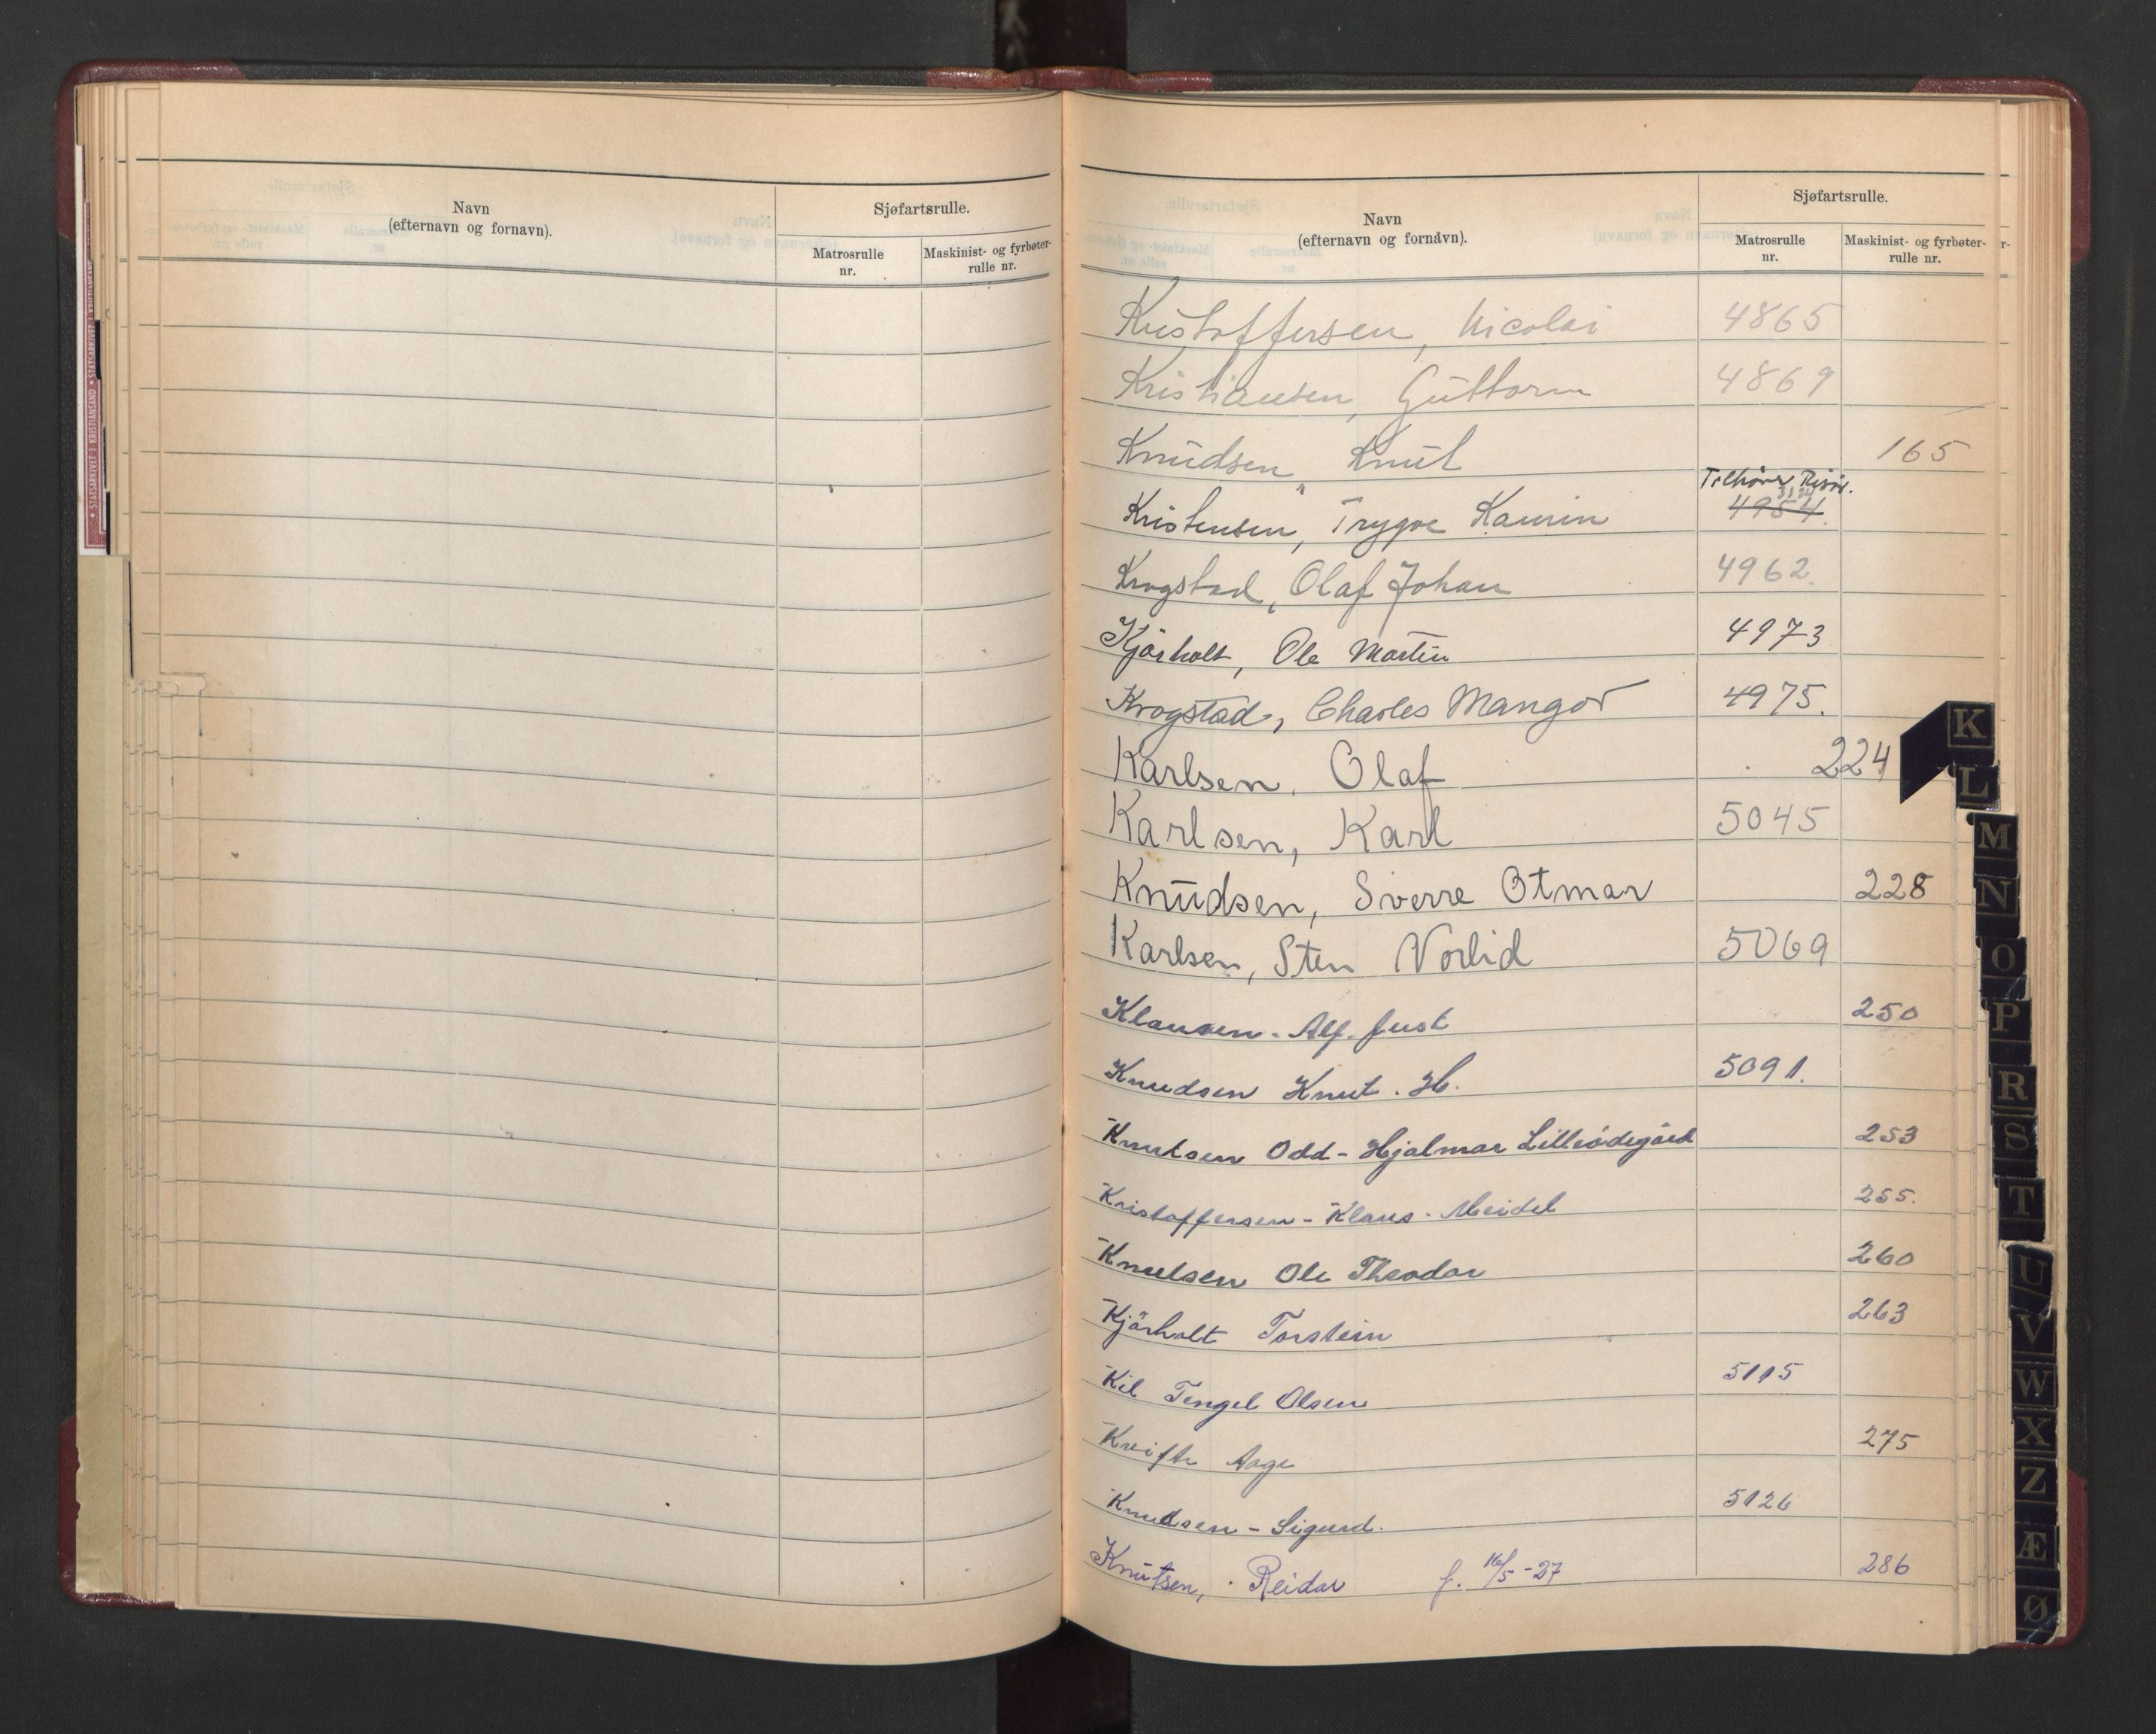 Navn
(efternavn og fornavn).
Sjøfartsrulle.
Matrosrulle
nr.
Maskinist- og fyrbøter-
rulle nr.
Navn
(efternavn og fornavn).
Sjøfartsrulle.
Matrosrulle
nr.
Maskinist- og fyrbøter-
rulle nr.
Kristoffersen, Nicolai 4865
Kristiansen, Guttorm 4869
Knudsen, Knut 165
Tilhører Risør.
Kristensen, Trygve Kaurin 4954
Krogstad, Olaf Johan 4962.
Kjörholt, Ole Martin 4973
Krogstad, Charles Mangor 4975.
Karlsen, Olaf 224
Karlsen, Karl 5045
Knudsen, Sverre Otmar 228
Karlsen, Sten Vorlid 5069
Klausen - Alf. Just 250
Knudsen Knut. H. 5091.
Knutsen Odd - Hjalmar Lilleödegård 253
Kristoffersen - Klaus - Meidel 255.
Knutsen Ole Theodor 260
Kjörholt Torstein 263
Kil Tengel Olsen 5115
Aage 275
Knudsen - Sigurd. 5126
Knutsen, Reidar f. 16/5-27 286
K
L
M
N
O
P
R
S
T
U
V
W
X
Z
Æ
Ø
STATSARKIVET I KRISTIANSAND